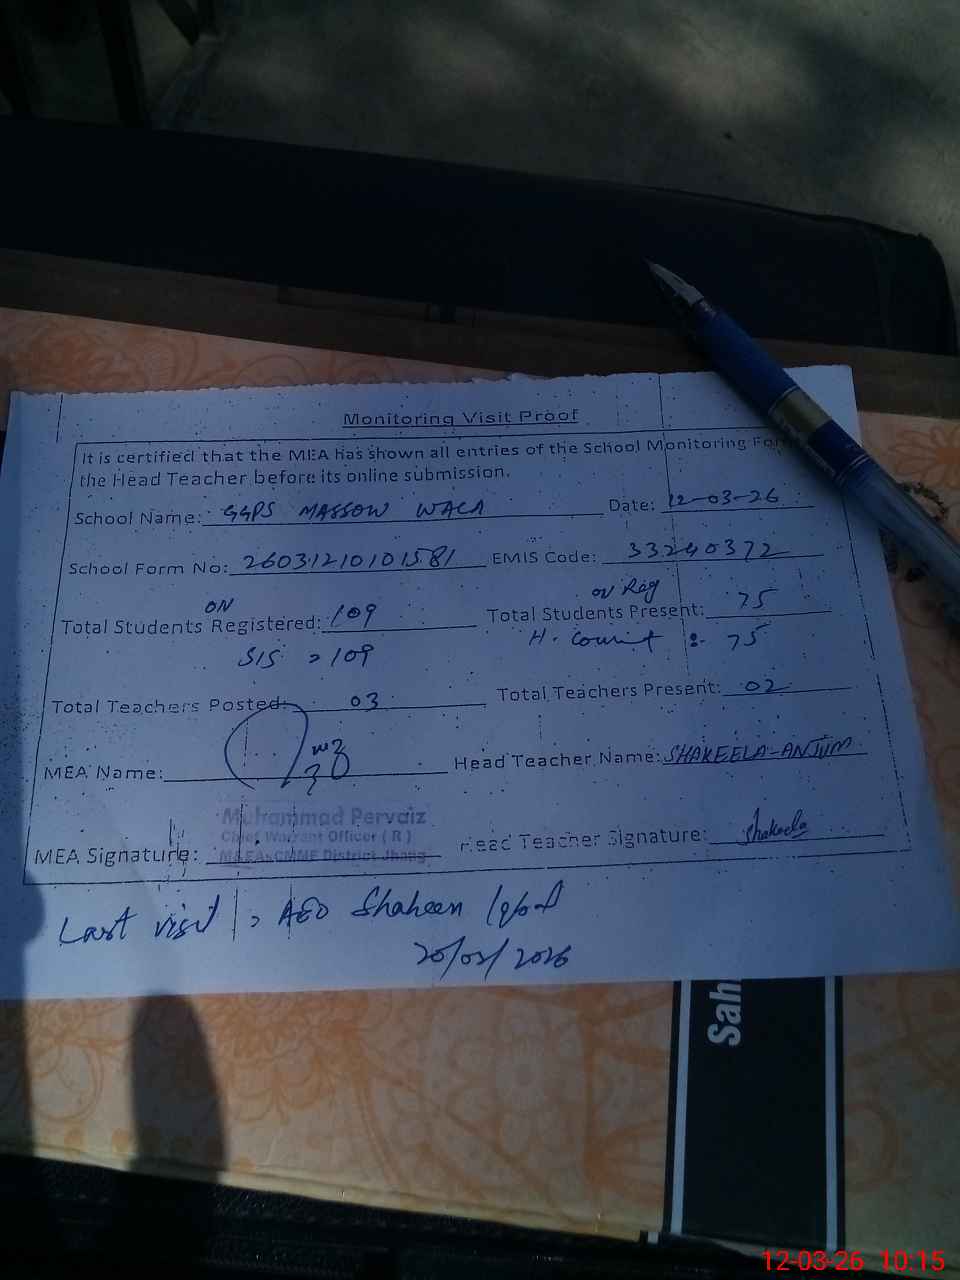 Monitoring Visit Proof
It is certified that the MEA has shown all entries of the School Monitoring For
the Head Teacher before its online submission.
School Name: GGPS MASSOW WALA Date: 12-03-26
School Form No: 26031210101581 EMIS Code: 33240372
ON ov Reg
Total Students Registered: 109 Total Students Present: 75
SIS > 109 H. Count :- 75
Total Teachers Posted: 03 Total Teachers Present: 02
MEA Name: Head Teacher Name: SHAKEELA-ANJUM
Muhammad Pervaiz
Chief Warrant Officer ( R )
MEA Signature: MEA CMMF District Jhang Head Teacher Signature: Shakeela
Last visit > AEO Shaheen Iqbal
2026
Sah
12-03-26 10:15